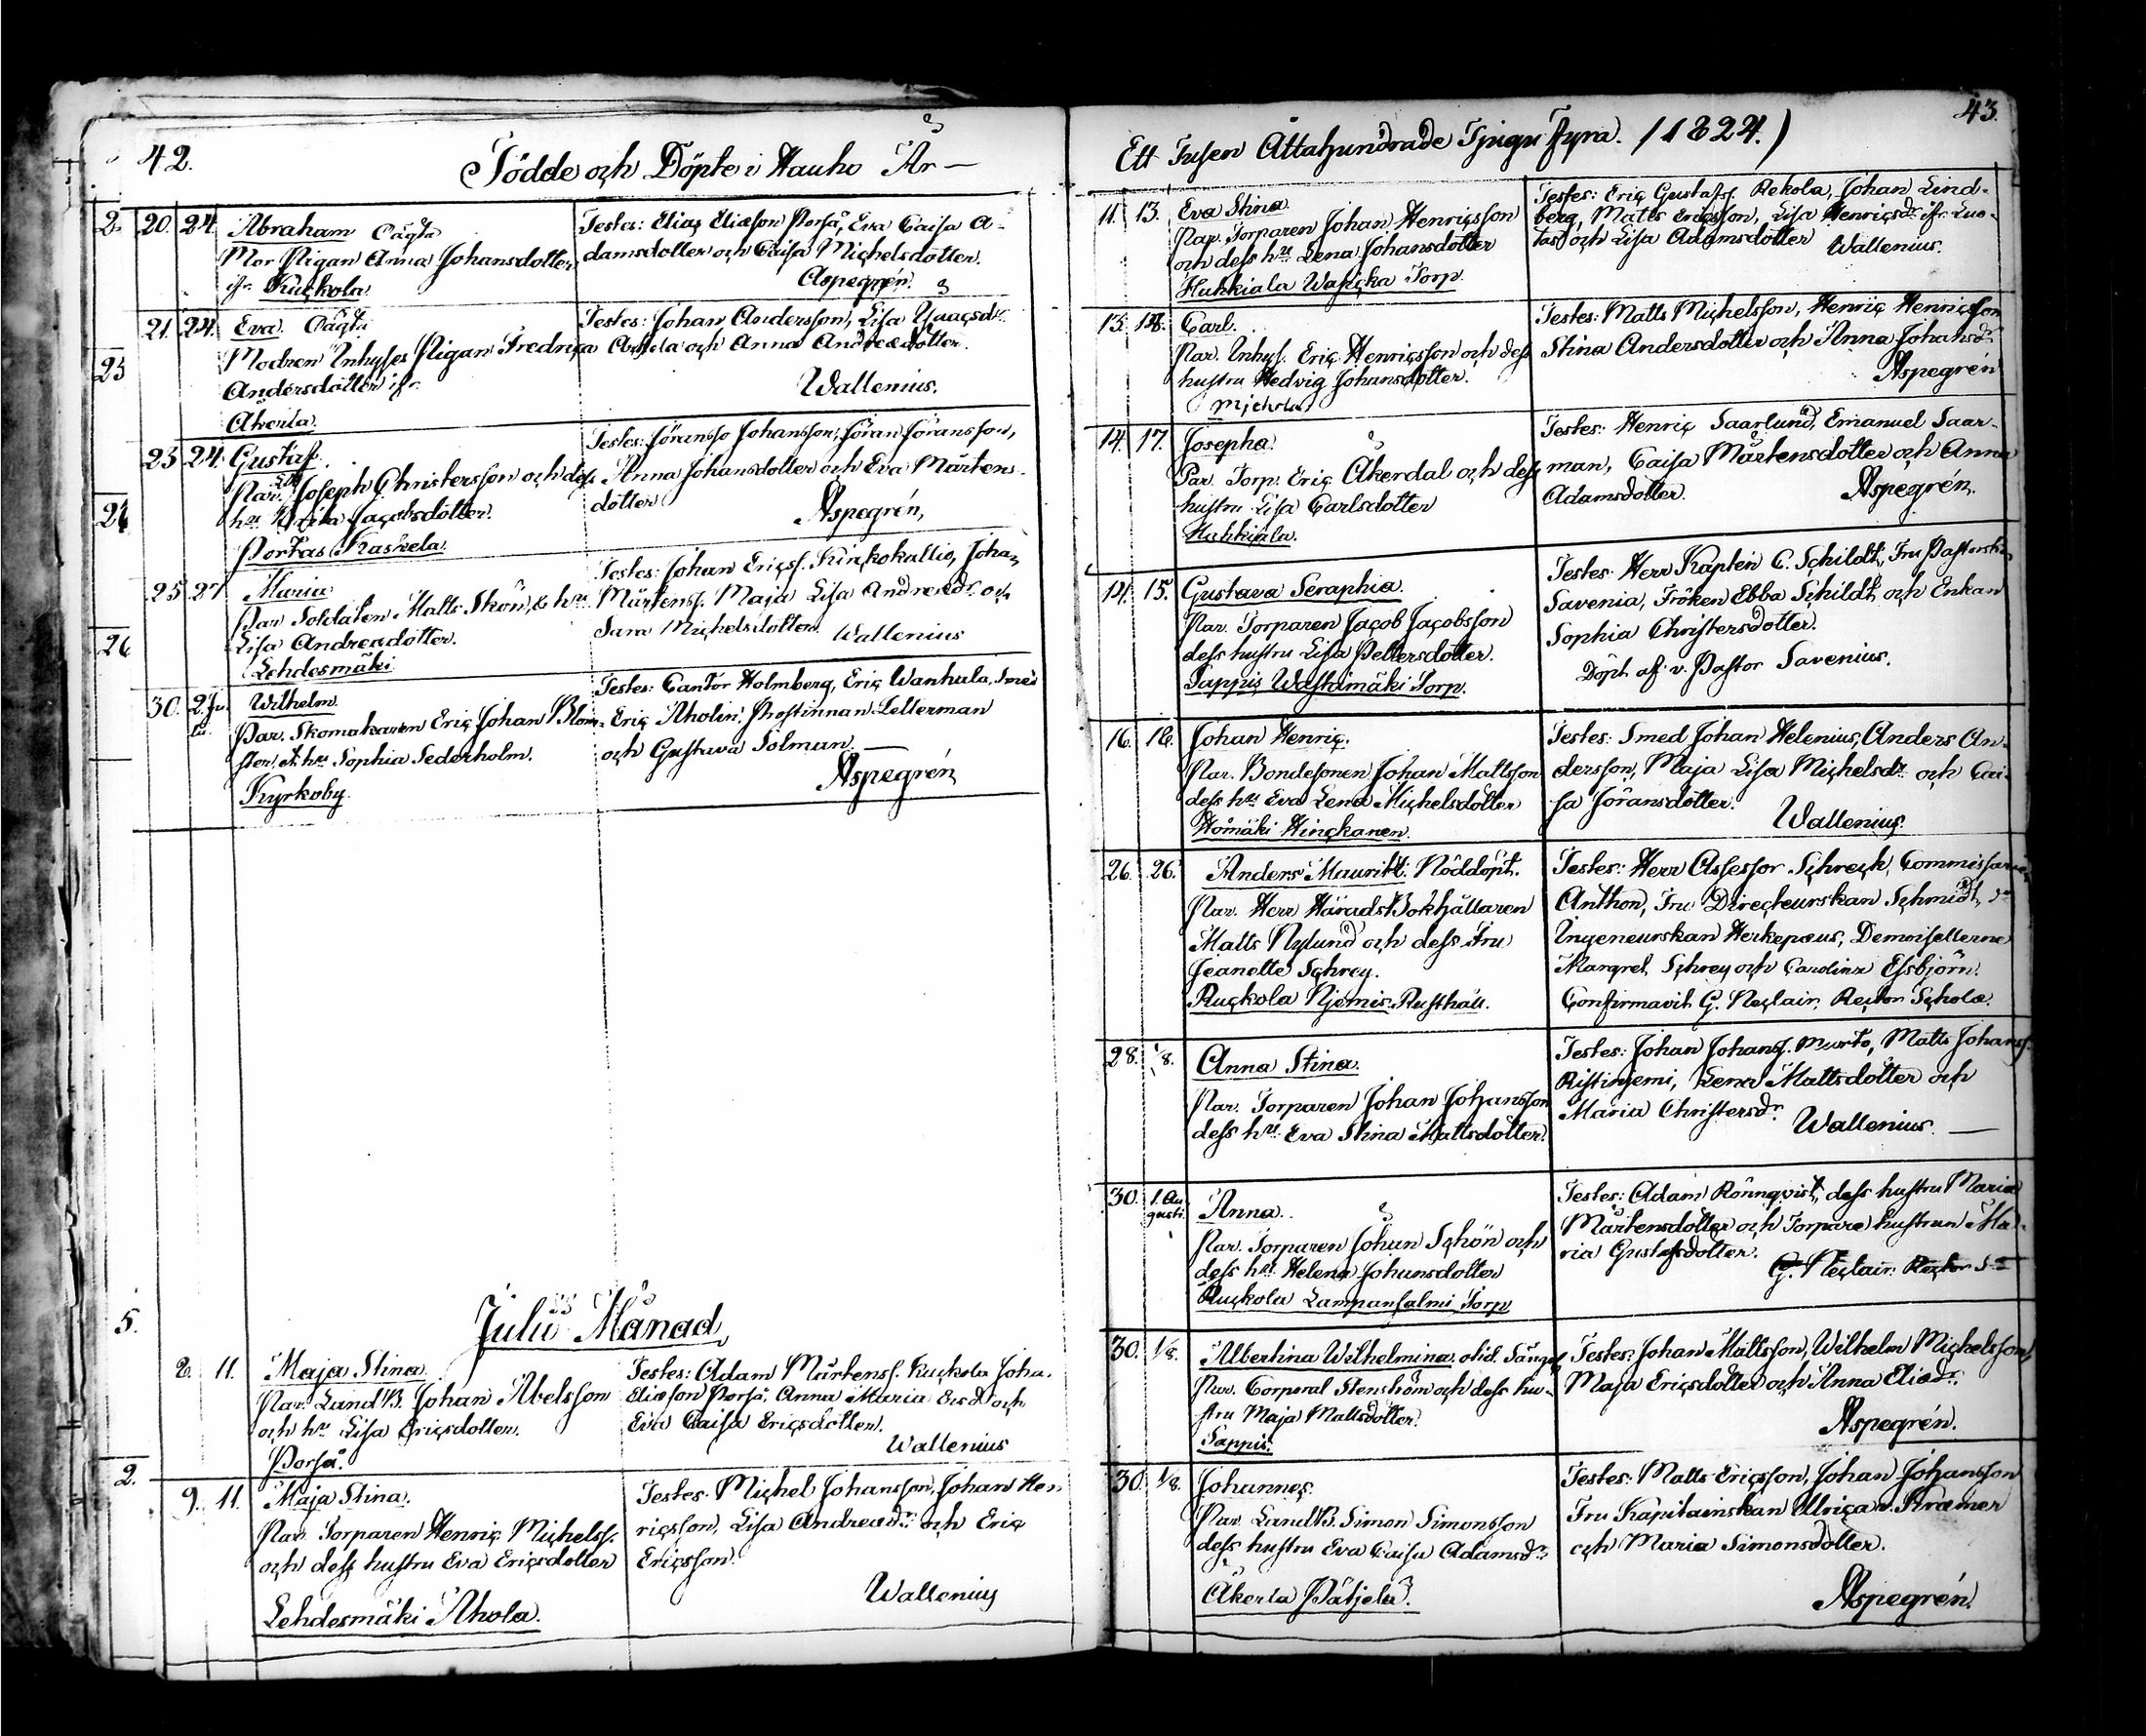 42.
Födde och Döpte i Hauho År —
20. 24. Abraham Oägta
Mor Pigan Anna Johansdotter
ifr. Kuckola
Testes: Elias Eliæson Porså, Eva Caisa A-
damsdotter och Caisa Michelsdotter.
Aspegrén.
21. 24. Eva. Oägta
Modren Inhyses Pigan Fredrica
Andersdotter ifr.
Akerla.
Testes: Johan Andersson, Lisa Isaacsdr.
och Anna Andreædotter.
Wallenius.
23 24. Gustaf.
Par. Joseph Christersson och dess
hu Jacobsdotter.
Portas Kaskela.
Testes: Johansson, Jöran Jöransson,
Anna Johansdotter och Eva Mårtens-
dotter
Aspegrén,
25 27 Maria
Par Soldaten Matts Skön, & hu
Lisa Andreædotter.
Lehdesmäki
Testes: Johan Ericss. Kirkokallio, Johan
Mårtenss. Maja Lisa Andreædr. och
Sara Michelsdotter. Wallenius
30. 2. Ju-
lii. Wilhelm.
Par. Skomakaren Eric Johan Blom-
ster, & hu Sophia Sederholm.
Kyrkoby.
Testes: Cantor Holmberg, Eric Wanhala, Smed
Eric Aholin, Prostinnan Lellerman
och Gustava Solman. —
Aspegrén
Julii Månad
2. 11. Maja Stina
Par. LandB. Johan Abelsson
och hu Lisa Ericsdotter.
Porså.
Testes: Adam Mårtenss. Kuckola Joha.
Eliæson Porså. Anna Maria och
Eva Caisa Ericsdotter.
Wallenius
9. 11. Maja Stina.
Par. Torparen Henric Michelss.
och dess hustru Eva Ericsdotter
Lehdesmäki Ahola.
Testes. Michel Johansson, Johan Hen
ricsson, Lisa Andreædr. och Eric
Ericsson.
Wallenius
43.
Ett Tusen Åttahundrade Tjugu Fyra. (1824.)
11. 13. Eva Stina
Par. Torparen Johan Henricsson
och dess hu Lena Johansdotter
Hahkiala Wahcka Torp.
Testes: Eric Gustafss. Rekola, Johan Lind-
berg, Matts Ericsson, Lisa Henricsdr. ifr. Luo-
tas och Lisa Adamsdotter Wallenius.
13. 18. Carl.
Par. Inhys. Eric Henricsson och dess
hustru Hedvig Johansdotter.
Testes: Matts Michelsson, Henric Henricsson
Stina Andersdotter och Anna Johansdr.
Aspegrén
14. 17. Josepha.
Par. Torp. Eric Åkerdal och dess
hustru Lisa Carlsdotter
Hahkiala.
Testes: Henric Saarlund, Emanuel Saar-
man, Caisa Mårtensdotter och Anna
Adamsdotter. Aspegrén.
14. 15. Gustava Seraphia.
Par. Torparen Jacob Jacobsson
dess hustru Lisa Pettersdotter.
Sappis Washdimäki Torp.
Testes. Herr Kapten C. Schildt, Fru Pastorskan
Savenia, Fröken Ebba Schildt och Enkan
Sophia Christersdotter.
Döpt af v. Pastor Savenius.
16. 18. Johan Henric.
Par. Bondesonen Johan Mattsson
dess hu Eva Lena Michelsdotter
Wuomäki Hinckanen.
Testes. Smed Johan Helenius, Anders An-
dersson, Maja Lisa Michelsdr. och Cai-
sa Jöransdotter.
Wallenius.
26. 26. Anders Mauritz. Nöddöpt.
Par. Herr HäradsBokhållaren
Matts Nylund och dess Fru
Jeanette Schrey.
Ruckola Njemis. Rusthåll.
Testes: Herr Assessor Schreck, Commissarien
Anthon, Fru Directeurskan Schmidt,
Ingeneurskan Herkepæus, Demoisellerne
Margret Schrey och Carolina Essbjörn.
Confirmavit G. Neclair. Rector Scholæ.
28. 1/8. Anna Stina.
Par. Torparen Johan Johansson
dess hu Eva Stina Mattsdotter.
Testes: Johan Johanss. Murto, Matts Johanss.
Ristinjemi, Lena Mattsdotter och
Maria Christersdr. Wallenius —
30. 1. Au-
gusti. Anna.
Par. Torparen Johan Schön och
dess hu Helena Johansdotter
Ruckola Lampansalmi Torp
Testes: Adam Rönnqvist, dess hustru Maria
Mårtensdotter och Torpare hustrun Ma-
ria Gustafsdotter.
G. Neclair. Rector
30. 1/8. Albertina Wilhelmina.
Par. Corporal Stenström och dess hu-
stru Maja Mattsdotter.
Sappis.
Testes: Johan Mattsson, Wilhelm Michelsson,
Maja Ericsdotter och Anna Eliædr.
Aspegrén.
30. 1/8. Johannes.
Par. LandB. Simon Simonsson
dess hustru Eva Caisa Adamsdr.
Åkerla Pätjelä.
Testes: Matts Ericsson, Johan Johansson
Fru Kapitainskan Ulrica v. Kræmer
och Maria Simonsdotter.
Aspegrén.